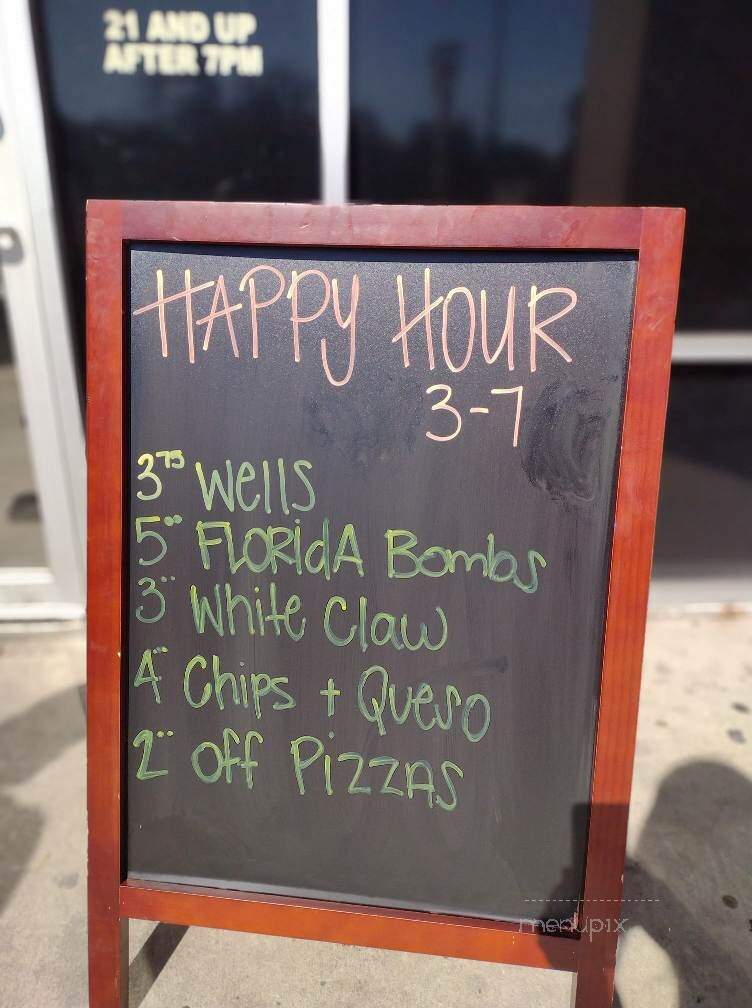 21 AND UP
AFTER 7PM
HAPPY HOUR
3-7
3.75 Wells
5.00 FLORIDA Bombs
3.00 White Claw
4.00 Chips + Queso
2.00 off PIZZAS
menupix